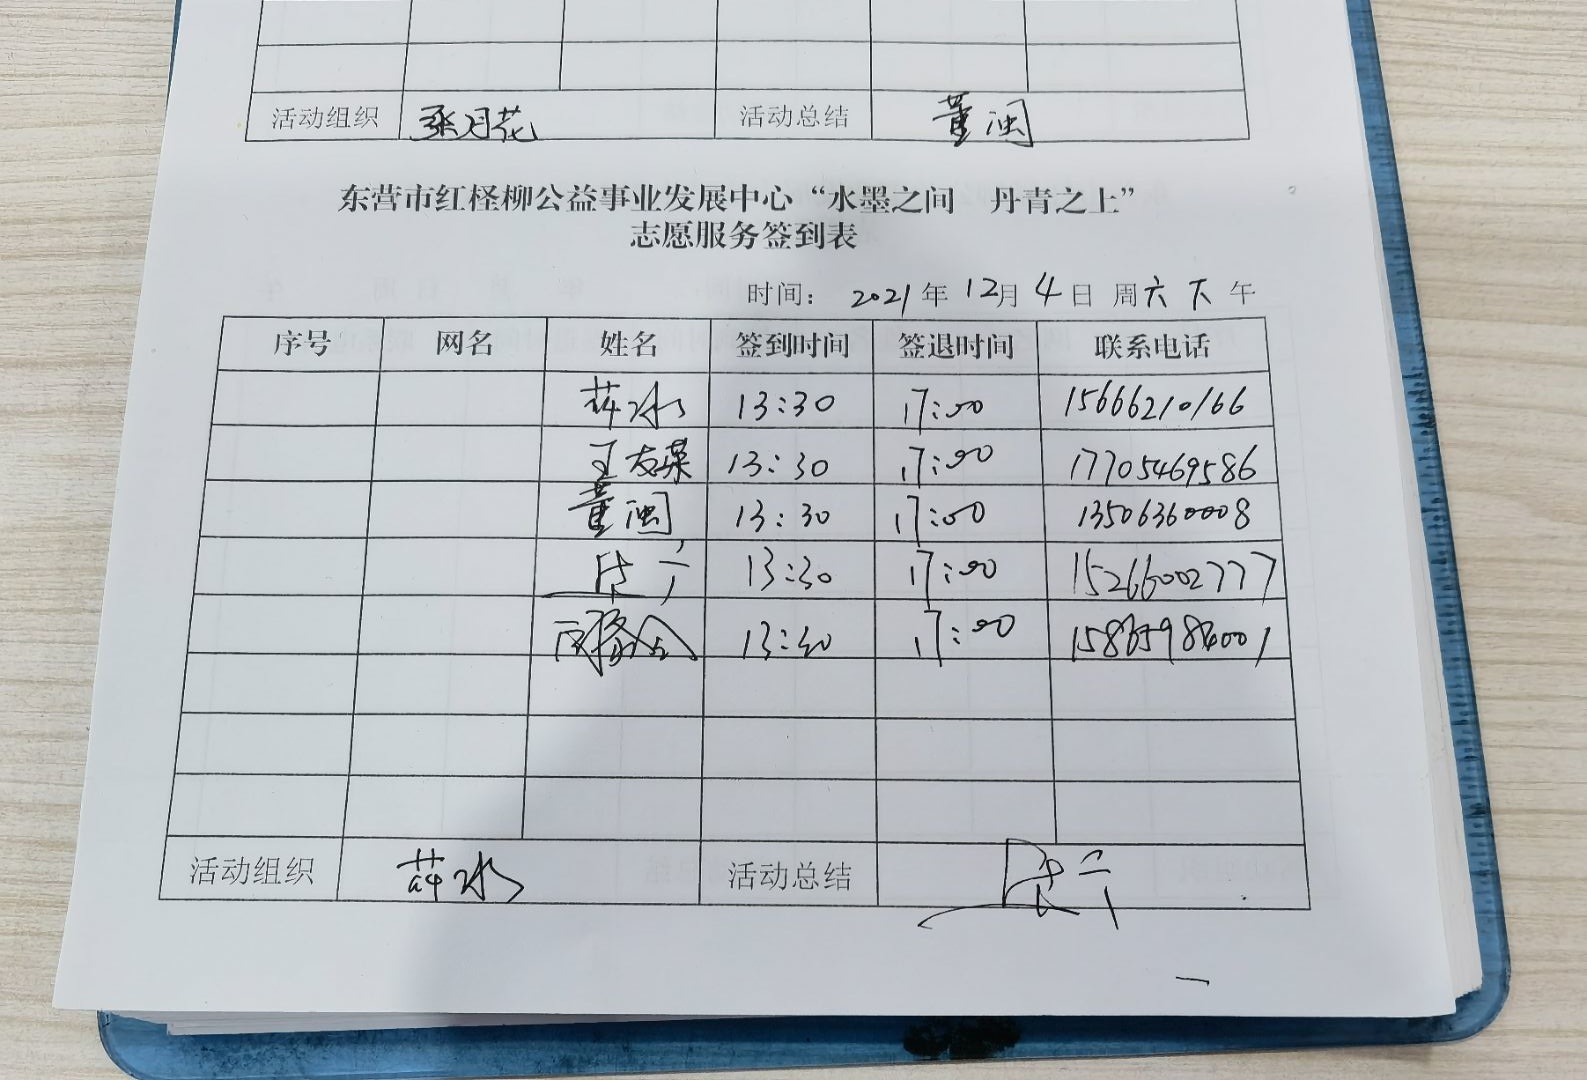 活动组织 张月花 活动总结 董闽
东营市红柽柳公益事业发展中心“水墨之间 丹青之上”
志愿服务签到表
时间： 2021年12月4日 周六下午
序号 网名 姓名 签到时间 签退时间 联系电话
薛冰 13:30 17:00 15666210166
王友菜 13:30 17:00 17705469586
董闽 13:30 17:00 13506360008
13:30 17:00 15266002777
13:30 17:00
活动组织 薛冰 活动总结